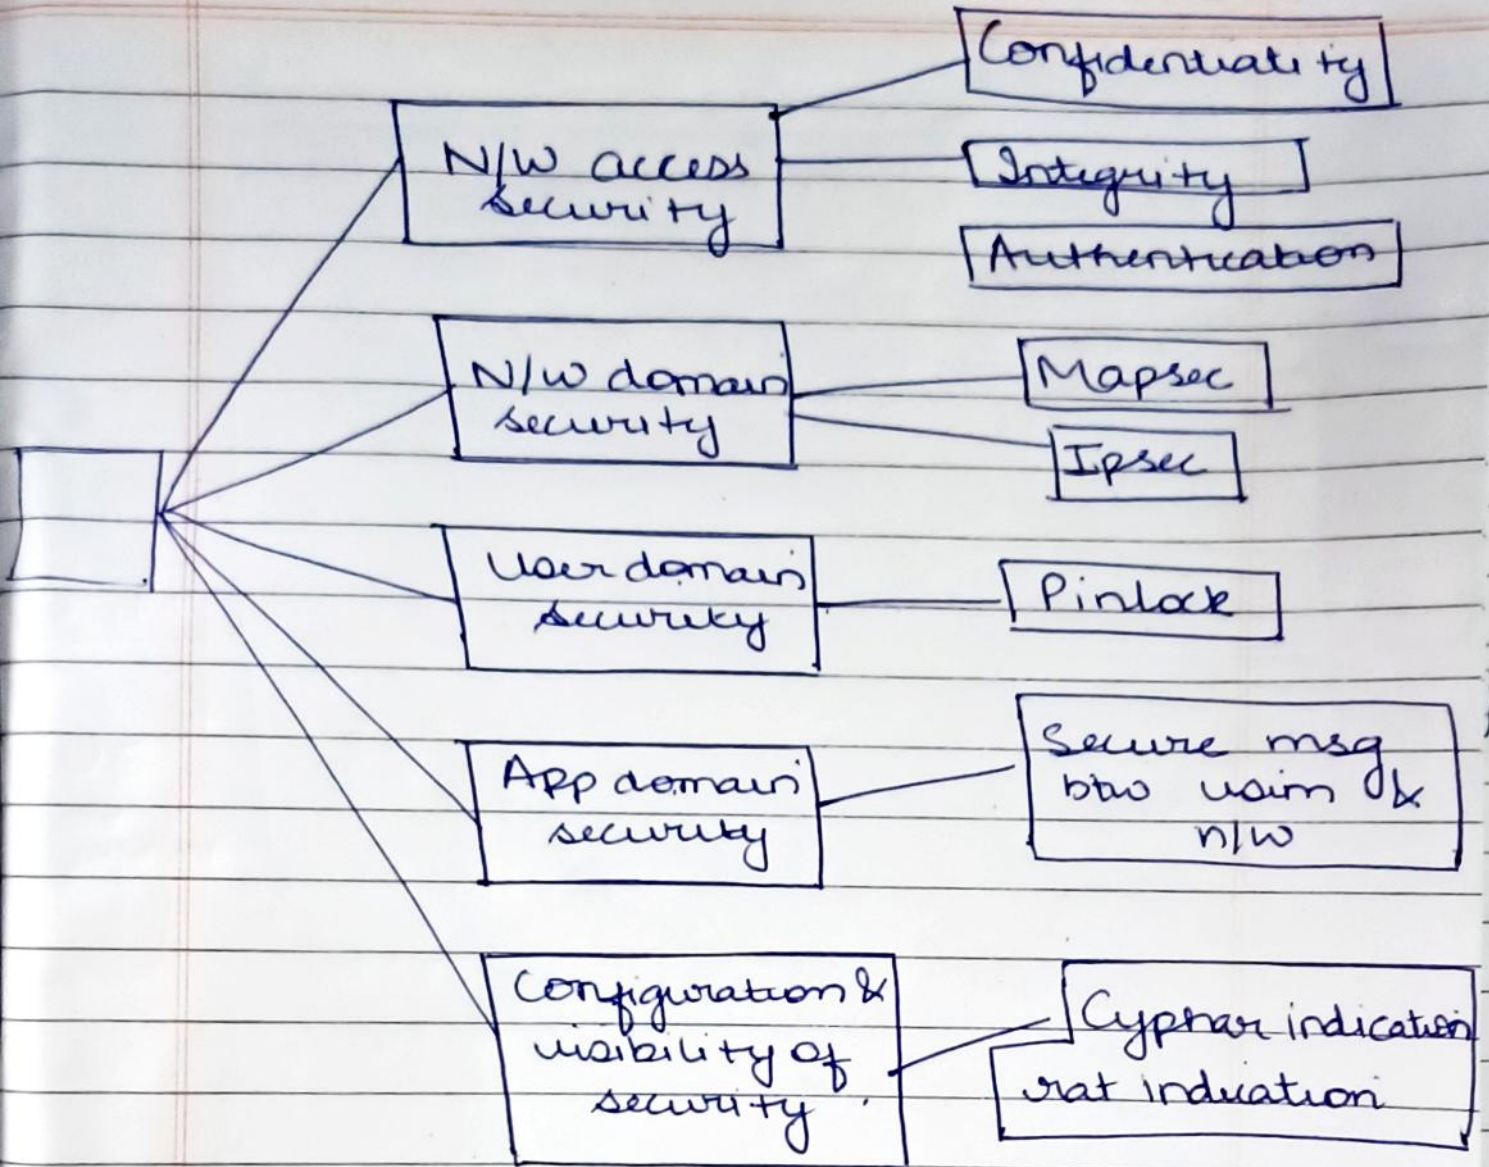 Confidentiality
N/W access
security
Integrity
Authentication
N/W domain
security
Mapsec
Ipsec
User domain
security
Pinlock
App domain
security
Secure msg
btw usim &
n/w
Configuration &
visibility of
security
Cyphar indication
rat indication